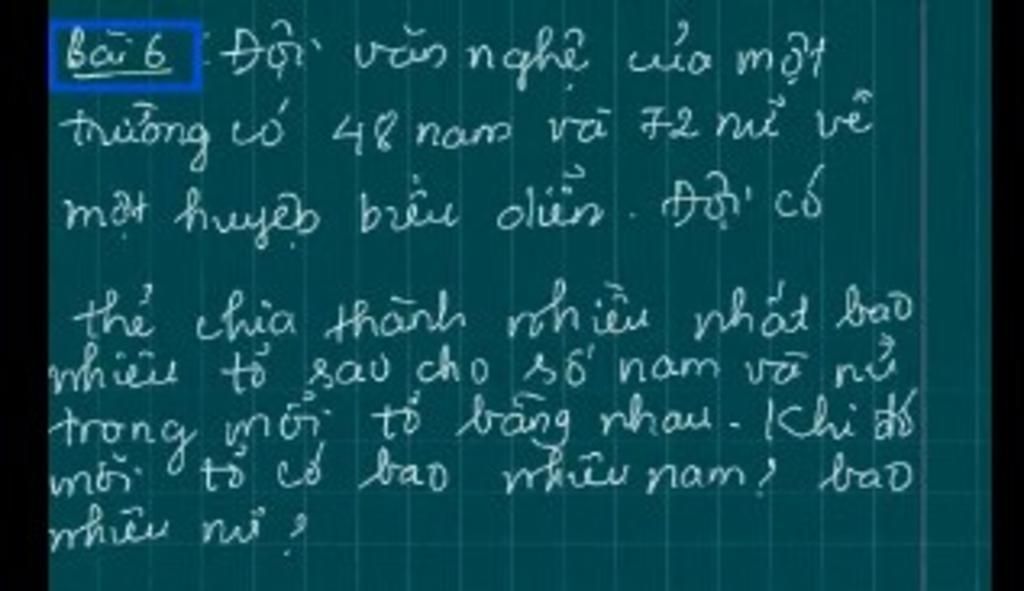 Bài 6: Đội văn nghệ của một
trường có 48 nam và 72 nữ về
một huyện biểu diễn. Đội có
thể chia thành nhiều nhất bao
nhiêu tổ sao cho số nam và nữ
trong mỗi tổ bằng nhau. Khi đó
mỗi tổ có bao nhiêu nam? bao
nhiêu nữ?